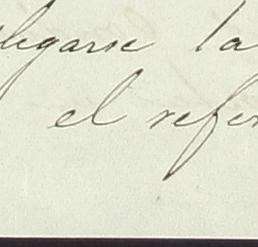 legarse la
el refer